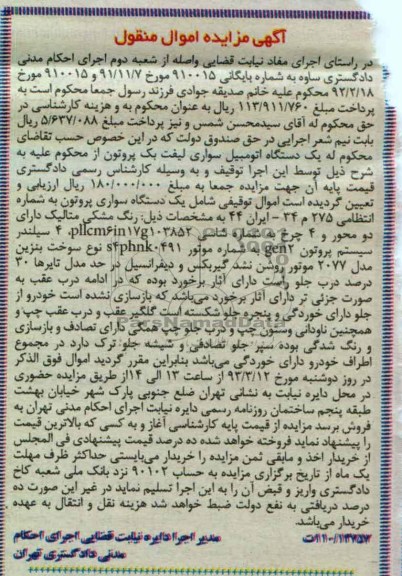 آگهی مزایده اموال منقول
در راستای اجرای مفاد نیابت قضایی واصله از شعبه دوم اجرای احکام مدنی
دادگستری ساوه به شماره بایگانی ۹۱۰۰۱۵ مورخ ۹۱/۱۱/۷ و ۹۱۰۰۱۵ مورخ
۹۲/۲/۱۸ محکوم علیه خانم صدیقه جوادی فرزند رسول جمعا محکوم است به
پرداخت مبلغ ۱۱۳/۹۱۱/۷۶۰ ریال به عنوان محکوم به و هزینه کارشناسی در
حق محکوم له آقای سیدمحسن شمس و نیز پرداخت مبلغ ۵/۶۳۷/۰۸۸ ریال
بابت نیم عشر اجرایی در حق صندوق دولت که در این خصوص حسب تقاضای
محکوم له یک دستگاه اتومبیل سواری لیفت بک پروتون از محکوم علیه به
شرح ذیل توسط این اجرا توقیف و به وسیله کارشناس رسمی دادگستری
قیمت پایه آن جهت مزایده جمعا به مبلغ ۱۸۰/۰۰۰/۰۰۰ ریال ارزیابی و
تعیین گردیده است اموال توقیفی شامل یک دستگاه سواری پروتون به شماره
انتظامی ۲۷۵ م ۳۴ - ایران ۴۴ به مشخصات ذیل: رنگ مشکی متالیک دارای
دو محور و ۴ چرخ به شماره شاسی pllcm۶in۱۷g۱۰۳۸۵۲، ۴ سیلندر
سیستم پروتون gen۲ به شماره موتور s۴phnk۰۴۹۱ نوع سوخت بنزین
مدل ۲۰۷۷ موتور روشن نشد گیربکس و دیفرانسیل در حد مدل تایرها ۳۰
درصد درب جلو راست دارای آثار برخورد بوده که در ادامه درب عقب به
صورت جزئی تر دارای آثار برخورد می‌باشد که بازسازی نشده است خودرو از
جلو دارای خوردگی و پنجره جلو شکسته است گلگیر عقب و درب عقب چپ و
همچنین ناودانی وستون چپ و درب جلو چپ همگی دارای تصادف و بازسازی
و رنگ شدگی بوده سپر جلو تصادفی و شیشه جلو ترک دارد در مجموع
اطراف خودرو دارای خوردگی می‌باشد بنابراین مقرر گردید اموال فوق الذکر
در روز دوشنبه مورخ ۹۳/۳/۱۲ از ساعت ۱۳ الی ۱۴از طریق مزایده حضوری
در محل دایره نیابت به نشانی تهران ضلع جنوبی پارک شهر خیابان بهشت
طبقه پنجم ساختمان روزنامه رسمی دایره نیابت اجرای احکام مدنی تهران به
فروش برسد مزایده از قیمت پایه کارشناسی آغاز و به کسی که بالاترین قیمت
را پیشنهاد نماید فروخته خواهد شده ده درصد قیمت پیشنهادی فی المجلس
از خریدار اخذ و مابقی ثمن مزایده را خریدار می‌بایستی حداکثر ظرف مهلت
یک ماه از تاریخ برگزاری مزایده به حساب ۹۰۱۰۲ نزد بانک ملی شعبه کاخ
دادگستری واریز و قبض آن را به این اجرا تسلیم نماید در غیر این صورت ده
درصد دریافتی به نفع دولت ضبط خواهد شد هزینه نقل و انتقال به عهده
خریدار می‌باشد.
۱۱۰/۱۴۷۵۷ت
مدیر اجرا دایره نیابت قضایی اجرای احکام
مدنی دادگستری تهران